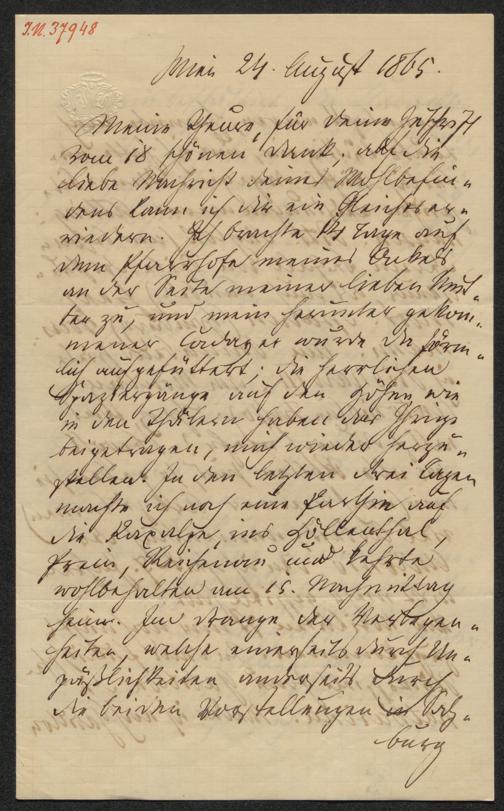 J.N. 37948
Wien 24. August 1865.
Meine Theure, für deine Zuschrift
vom 18 schönen Dank; auf die
liebe Nachricht deines Wohlbefin-
dens kann ich dir ein Gleiches er-
wiedern. Ich brachte Tage auf
dem Pfarrhofe meines Onkels
an der Seite meiner lieben Mut-
ter zu, und mein herunter gekom-
mener Cadaver wurde da förm-
lich aufgefüttert; die herrlichen
Spaziergänge auf den Höhen wie
in den Thälern haben das Ihrige
beigetragen, mich wieder herzu-
stellen. In den letzten drei Tagen
machte ich noch eine Parthie auf
die Raxalpe, ins Höllenthal,
Prein, Reichenau und kehrte
wohlbehalten am 15. Nachmittag
heim. Im Drange der Verlegen-
heiten, welche einerseits durch Un-
päßlichkeiten anderseits durch
die beiden Vorstellungen in Salz-
burg